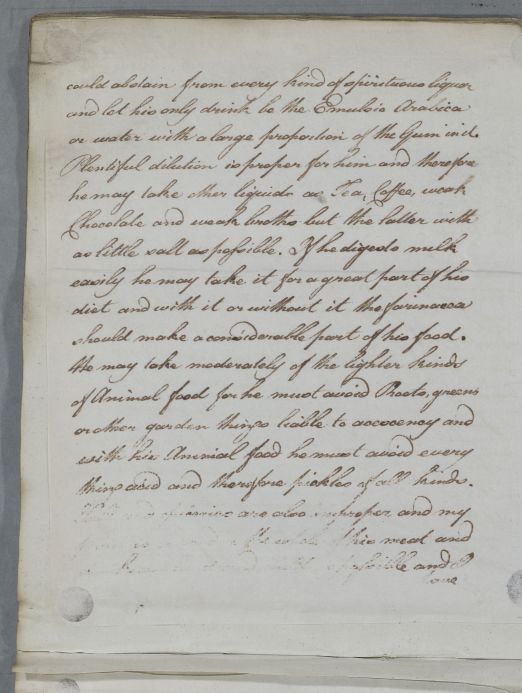 could abstain from every kind of spirituous liquor
and let his only drink be the Emulsio Arabica
or water with a large proportion of the Gum in it.
Plentiful dilution is proper for him and therefore
he may take other liquids as Tea, Coffee, weak
Chocolate and weak broths but the latter with
as little salt as possible. If he digests milk
easily he may take it for a great part of his
diet and with it or without it the farinacea
should make a considerable part of his food.
He may take moderately of the lighter kinds
of Animal food for he must avoid Roots, greens
or other garden things liable to acescency and
with his Animal food he must avoid every
thing acid and therefore pickles of all kinds.
are also improper and my
his meat and
possible and I
have